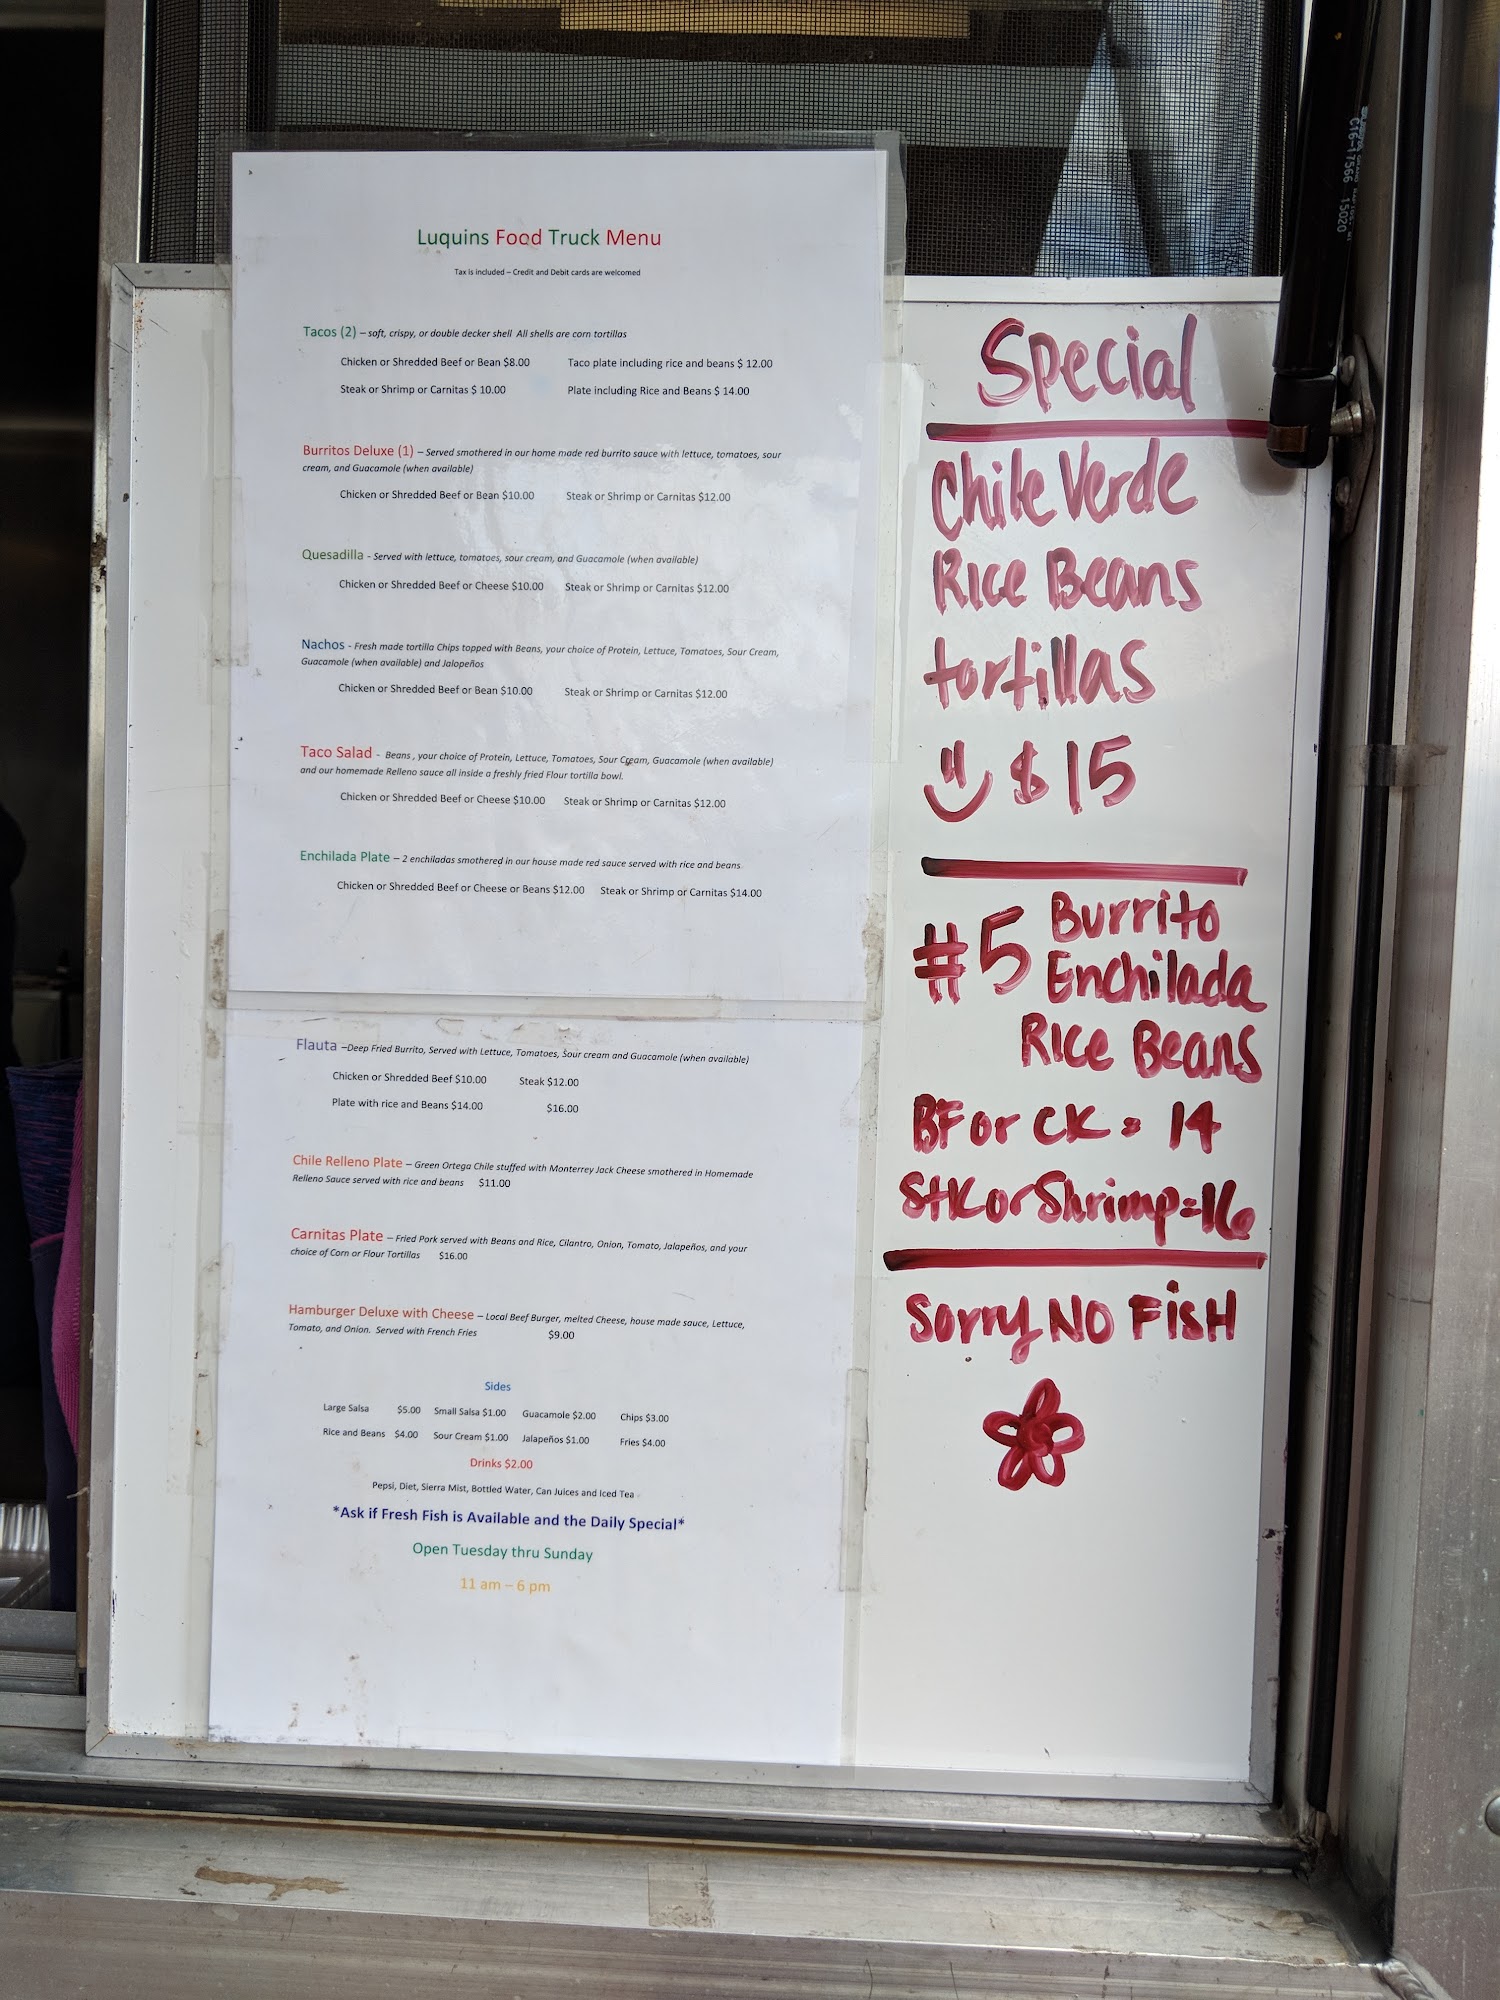 Luquins Food Truck Menu
Tax is included – Credit and Debit cards are welcomed
Tacos (2) – soft, crispy, or double decker shell All shells are corn tortillas
Chicken or Shredded Beef or Bean $8.00 Taco plate including rice and beans $ 12.00
Steak or Shrimp or Carnitas $ 10.00 Plate including Rice and Beans $ 14.00
Burritos Deluxe (1) – Served smothered in our home made red burrito sauce with lettuce, tomatoes, sour
cream, and Guacamole (when available)
Chicken or Shredded Beef or Bean $10.00 Steak or Shrimp or Carnitas $12.00
Quesadilla - Served with lettuce, tomatoes, sour cream, and Guacamole (when available)
Chicken or Shredded Beef or Cheese $10.00 Steak or Shrimp or Carnitas $12.00
Nachos - Fresh made tortilla Chips topped with Beans, your choice of Protein, Lettuce, Tomatoes, Sour Cream,
Guacamole (when available) and Jalopeños
Chicken or Shredded Beef or Bean $10.00 Steak or Shrimp or Carnitas $12.00
Taco Salad - Beans , your choice of Protein, Lettuce, Tomatoes, Sour Cream, Guacamole (when available)
and our homemade Relleno sauce all inside a freshly fried Flour tortilla bowl.
Chicken or Shredded Beef or Cheese $10.00 Steak or Shrimp or Carnitas $12.00
Enchilada Plate – 2 enchiladas smothered in our house made red sauce served with rice and beans
Chicken or Shredded Beef or Cheese or Beans $12.00 Steak or Shrimp or Carnitas $14.00
Flauta –Deep Fried Burrito, Served with Lettuce, Tomatoes, Sour cream and Guacamole (when available)
Chicken or Shredded Beef $10.00 Steak $12.00
Plate with rice and Beans $14.00 $16.00
Chile Relleno Plate – Green Ortega Chile stuffed with Monterrey Jack Cheese smothered in Homemade
Relleno Sauce served with rice and beans $11.00
Carnitas Plate – Fried Pork served with Beans and Rice, Cilantro, Onion, Tomato, Jalapeños, and your
choice of Corn or Flour Tortillas $16.00
Hamburger Deluxe with Cheese – Local Beef Burger, melted Cheese, house made sauce, Lettuce,
Tomato, and Onion. Served with French Fries $9.00
Sides
Large Salsa $5.00 Small Salsa $1.00 Guacamole $2.00 Chips $3.00
Rice and Beans $4.00 Sour Cream $1.00 Jalapeños $1.00 Fries $4.00
Drinks $2.00
Pepsi, Diet, Sierra Mist, Bottled Water, Can Juices and Iced Tea
*Ask if Fresh Fish is Available and the Daily Special*
Open Tuesday thru Sunday
11 am – 6 pm
Special
Chile Verde
Rice Beans
tortillas
$15
#5 Burrito
Enchilada
Rice Beans
BF or CK = 14
Stk or Shrimp = 16
Sorry NO FiSH
C16-17566 15020